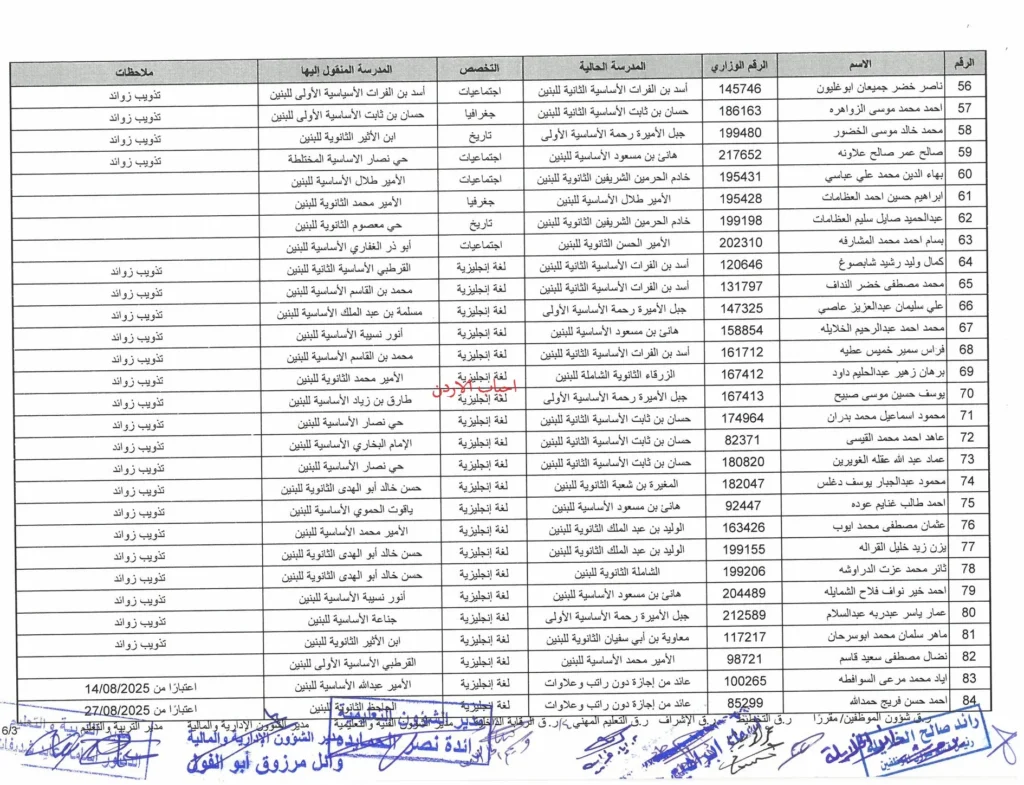 الرقم الاسم الرقم الوزاري المدرسة الحالية التخصص المدرسة المنقول إليها ملاحظات
56 ناصر خضر جميعان ابوغليون 145746 أسد بن الفرات الأساسية الثانية للبنين اجتماعيات أسد بن الفرات الأساسية الأولى للبنين تذويب زوائد
57 احمد محمد موسى الزواهره 186163 حسان بن ثابت الأساسية الثانية للبنين جغرافيا حسان بن ثابت الأساسية الأولى للبنين تذويب زوائد
58 محمد خالد موسى الخضور 199480 جبل الأميرة رحمة الأساسية الأولى تاريخ ابن الأثير الثانوية للبنين تذويب زوائد
59 صالح عمر صالح علاونه 217652 هانئ بن مسعود الأساسية للبنين اجتماعيات حي نصار الاساسية المختلطة تذويب زوائد
60 بهاء الدين محمد علي عباسي 195431 خادم الحرمين الشريفين الثانوية للبنين اجتماعيات الأمير طلال الأساسية للبنين
61 ابراهيم حسين احمد العظامات 195428 الأمير طلال الأساسية للبنين جغرفيا الأمير محمد الثانوية للبنين
62 عبدالحميد صايل سليم العظامات 199198 خادم الحرمين الشريفين الثانوية للبنين تاريخ حي معصوم الثانوية للبنين
63 بسام احمد محمد المشارفه 202310 الأمير الحسن الثانوية للبنين اجتماعيات أبو ذر الغفاري الأساسية للبنين
64 كمال وليد رشيد شابصوغ 120646 أسد بن الفرات الأساسية الثانية للبنين لغة إنجليزية القرطبي الأساسية الثانية للبنين تذويب زوائد
65 محمد مصطفى خضر النداف 131797 أسد بن الفرات الأساسية الثانية للبنين لغة إنجليزية محمد بن القاسم الأساسية للبنين تذويب زوائد
66 علي سليمان عبدالعزيز عاصي 147325 جبل الأميرة رحمة الأساسية الأولى لغة إنجليزية مسلمة بن عبد الملك الأساسية للبنين تذويب زوائد
67 محمد احمد عبدالرحيم الخلايله 158854 هانئ بن مسعود الأساسية للبنين لغة إنجليزية أنور نسيبة الأساسية للبنين تذويب زوائد
68 فراس سمير خميس عطيه 161712 أسد بن الفرات الأساسية الثانية للبنين لغة إنجليزية محمد بن القاسم الأساسية للبنين تذويب زوائد
69 برهان زهير عبدالحليم داود 167412 الزرقاء الثانوية الشاملة للبنين لغة إنجليزية الأمير محمد الثانوية للبنين تذويب زوائد
احباب الاردن
70 يوسف حسين موسى صبيح 167413 جبل الأميرة رحمة الأساسية الأولى لغة إنجليزية طارق بن زياد الأساسية للبنين تذويب زوائد
71 محمود اسماعيل محمد بدران 174964 حسان بن ثابت الأساسية الثانية للبنين لغة إنجليزية حي نصار الأساسية للبنين تذويب زوائد
72 عاهد احمد محمد القيسي 82371 حسان بن ثابت الأساسية الثانية للبنين لغة إنجليزية الإمام البخاري الأساسية للبنين تذويب زوائد
73 عماد عبد الله عقله الغويرين 180820 حسان بن ثابت الأساسية الثانية للبنين لغة إنجليزية حي نصار الأساسية للبنين تذويب زوائد
74 محمود عبدالجبار يوسف دغلس 182047 المغيرة بن شعبة الثانوية للبنين لغة إنجليزية حسن خالد أبو الهدى الثانوية للبنين تذويب زوائد
75 احمد طالب غنايم عوده 92447 هانئ بن مسعود الأساسية للبنين لغة إنجليزية ياقوت الحموي الأساسية للبنين تذويب زوائد
76 عثمان مصطفى محمد ايوب 163426 الوليد بن عبد الملك الثانوية للبنين لغة إنجليزية الأمير محمد الأساسية للبنين تذويب زوائد
77 يزن زيد خليل القراله 199155 الوليد بن عبد الملك الثانوية للبنين لغة إنجليزية حسن خالد أبو الهدى الثانوية للبنين تذويب زوائد
78 ثائر محمد عزت الدراوشه 199206 الشاملة الثانوية للبنين لغة إنجليزية حسن خالد أبو الهدى الثانوية للبنين تذويب زوائد
79 احمد خير نواف فلاح الشمايله 204489 هانئ بن مسعود الأساسية للبنين لغة إنجليزية أنور نسيبة الأساسية للبنين تذويب زوائد
80 عمار ياسر عبدربه عبدالسلام 212589 جبل الأميرة رحمة الأساسية الأولى لغة إنجليزية جناعة الأساسية للبنين تذويب زوائد
81 ماهر سلمان محمد ابوسرحان 117217 معاوية بن أبي سفيان الثانوية للبنين لغة إنجليزية ابن الأثير الثانوية للبنين تذويب زوائد
82 نضال مصطفى سعيد قاسم 98721 الأمير محمد الأساسية للبنين لغة إنجليزية القرطبي الأساسية الأولى للبنين
83 اياد محمد مرعى السواقطه 100265 عائد من إجازة دون راتب وعلاوات لغة إنجليزية الأمير عبدالله الأساسية للبنين اعتبارًا من 14/08/2025
84 احمد حسن فريج حمدالله 85299 عائد من إجازة دون راتب وعلاوات لغة إنجليزية الجاحظ الثانوية للبنين اعتبارًا من 27/08/2025
ر.ق شؤون الموظفين/مقررًا ر.ق التخطيط ر.ق الإشراف ر.ق التعليم المهني ر.ق الرقابة مدير الشؤون الفنية والتعليمية مدير الشؤون الإدارية والمالية مدير التربية والتعليم
6/3
رائد صالح
مدير الشؤون التعليمية
رائدة نصر
مدير الشؤون الإدارية والمالية
وائل مرزوق أبو الفول